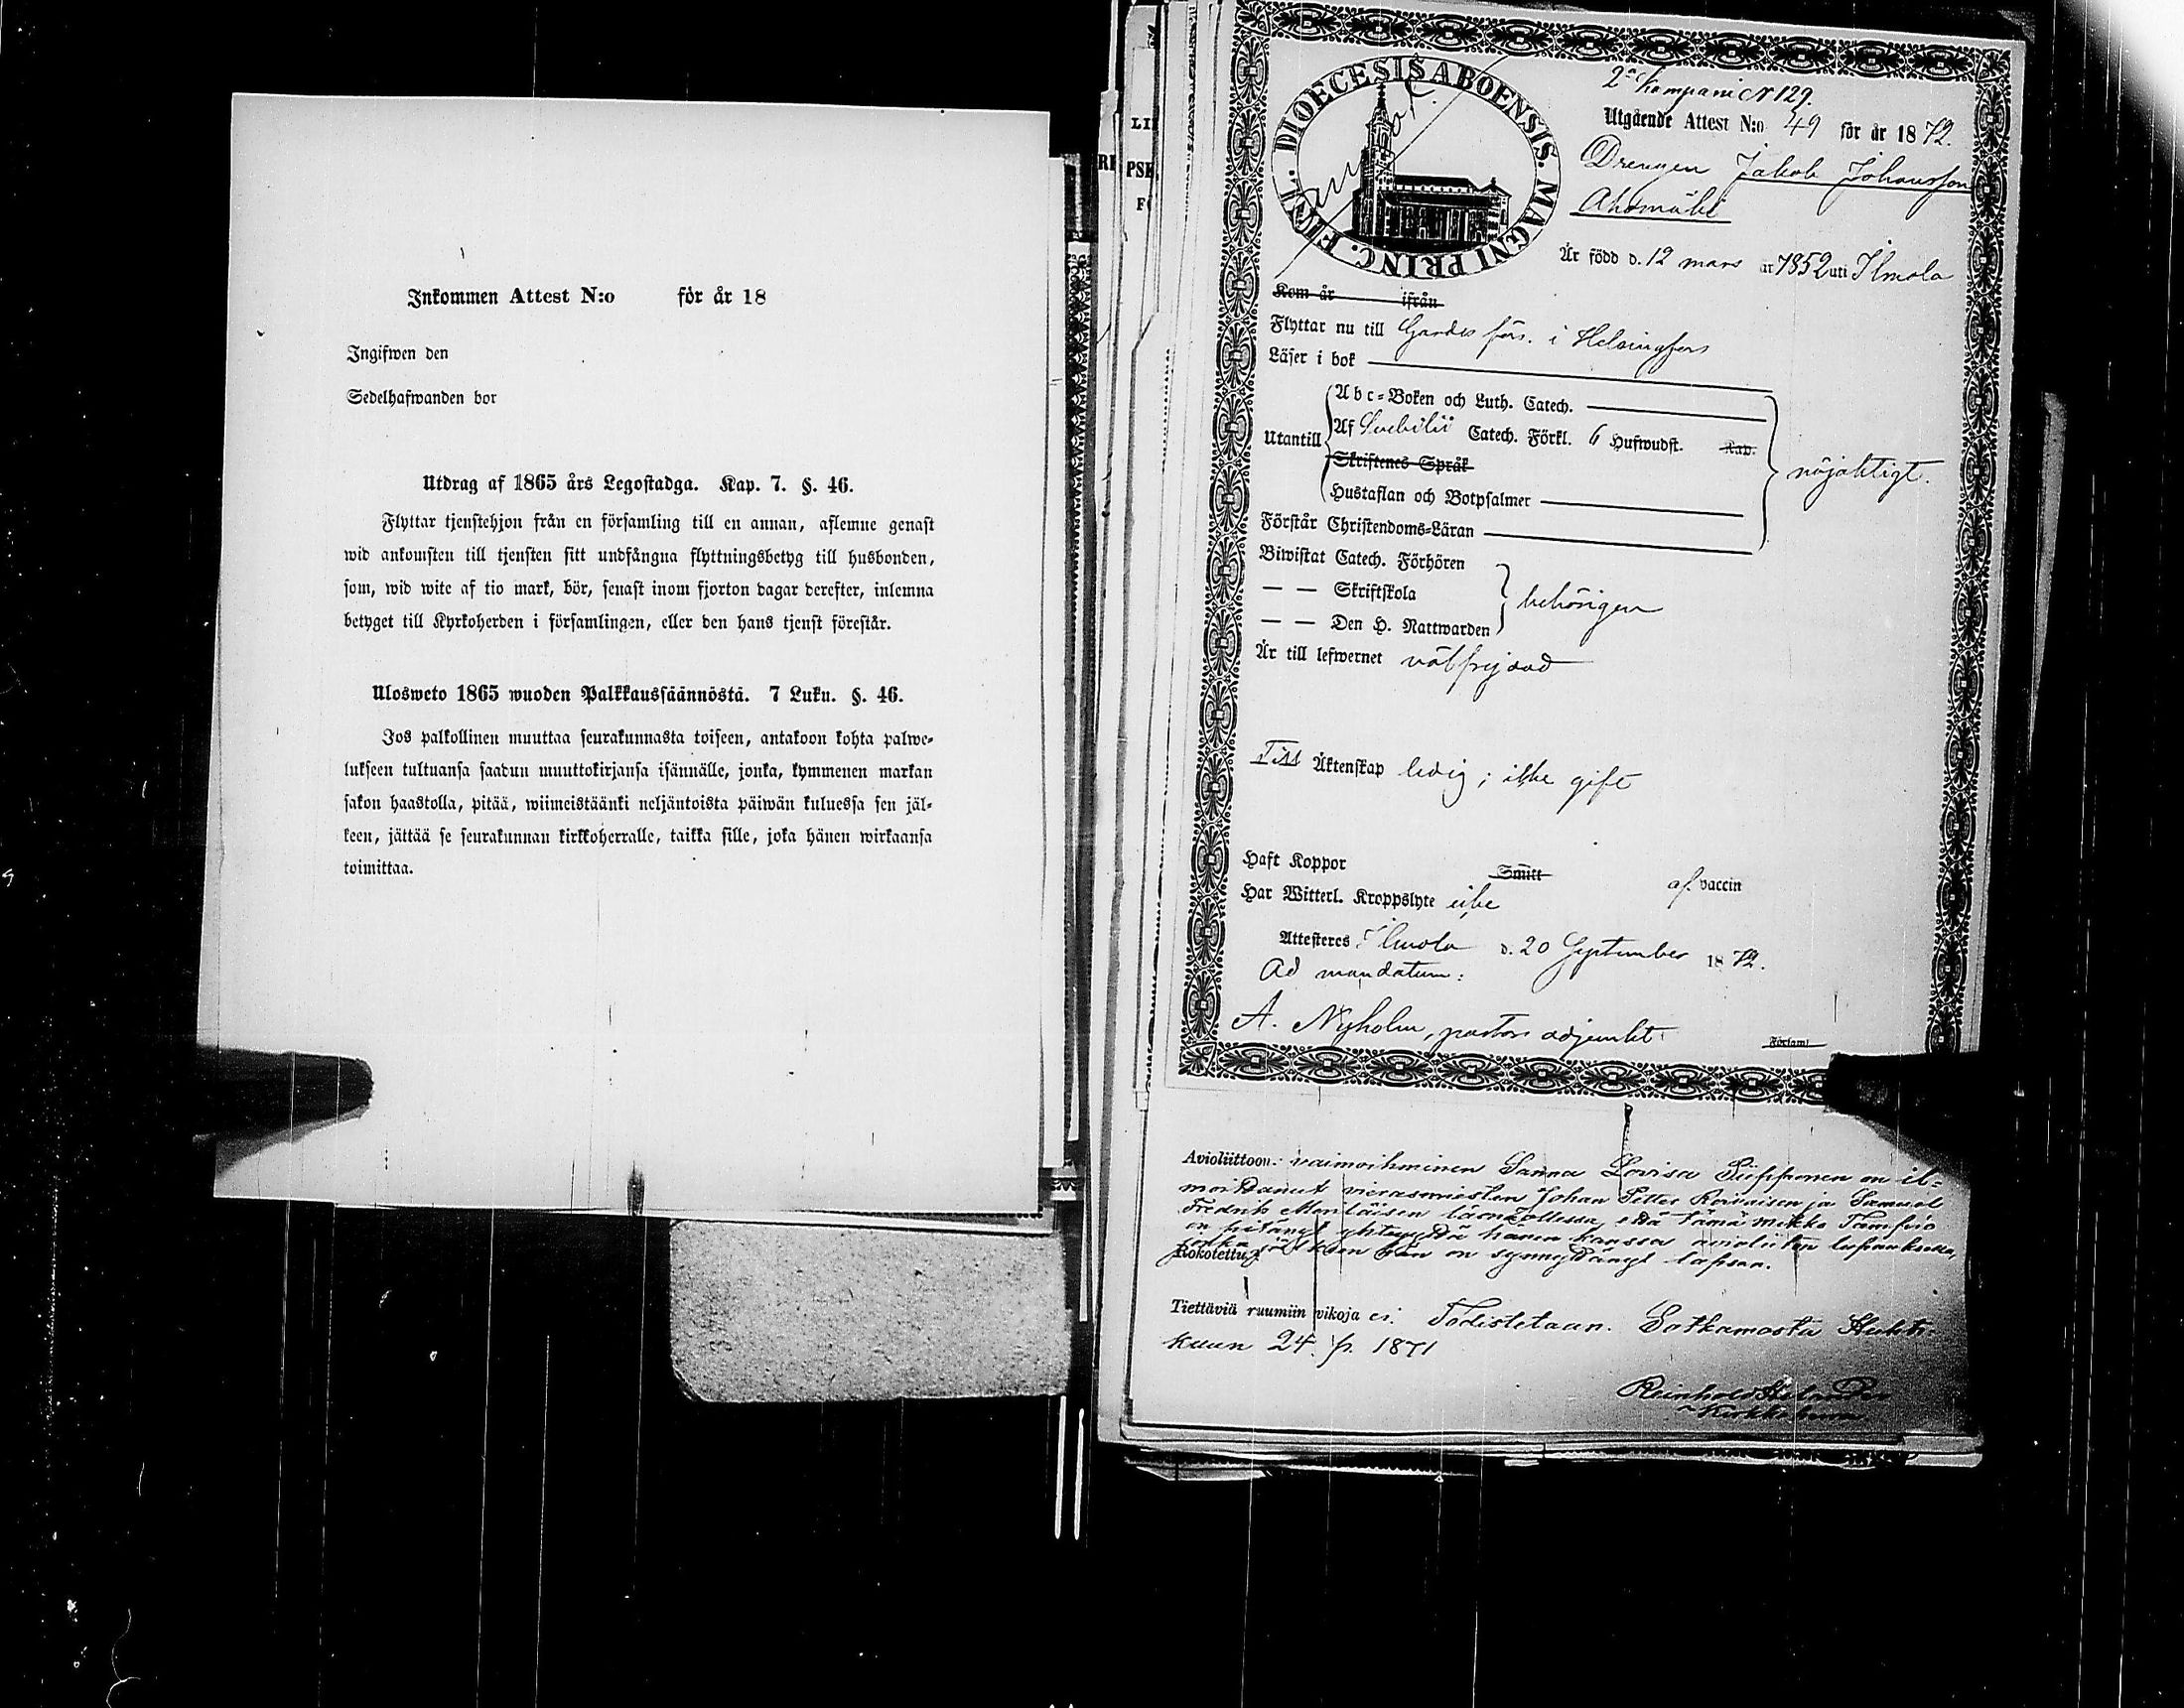 Inkommen Attest N:o för år 18
Ingifwen den
Sedelhafwanden bor
Utdrag af 1865 års Legostadga. Kap. 7. §. 46.
Flyttar tjenstehjon från en församling till en annan, aflemne genast
wid ankomsten till tjensten sitt undfångna flyttningsbetyg till husbonden,
som, wid wite af tio mark, bör, senast inom fjorton dagar derefter, inlemna
betyget till Kyrkoherden i församlingen, eller den hans tjenst förestår.
Ulosweto 1865 wuoden Palkkaussäännöstä. 7 Luku. §. 46.
Jos palkollinen muuttaa seurakunnasta toiseen, antakoon kohta palwe-
lukseen tultuansa saadun muuttokirjansa isännälle, jonka, kymmenen markan
sakon haastolla, pitää, wiimeistäänki neljäntoista päiwän kuluessa sen jäl-
keen, jättää se seurakunnan kirkkoherralle, taikka sille, joka hänen wirkaansa
toimittaa.
DIOECESIS ABOENSIS. MAGNI PRINC. FINL.
2a Kompani N 129.
Utgående Attest N:o 49 för år 1872.
Drengen Jakob Johansson
Ahomäki
Är född d. 12 mars år 1852 uti Ilmola
Kom år ifrån
Flyttar nu till Gardes förs. i Helsingfors
Läser i bok
Utantill
Abc-Boken och Luth. Catech.
Af Svebilii Catech. Förkl. 6 Hufwudst. Kap.
Skriftenes Språk
Hustaflan och Botpsalmer
nöjaktigt.
Förstår Christendoms-Läran
Biwistat Catech. Förhören
— — Skriftskola
— — Den H. Nattwarden
behörigen
Är till lefwernet välfrejdad
Till Äktenskap ledig; icke gift
Haft Koppor Smitt af vaccin
Har Witterl. Kroppslyte icke
Attesteres Ilmola d. 20 September 1872.
Ad mandatum:
A. Nyholm, pastors adjunkt.
Förfaml
Avioliittoon: vaimoihminen Sanna Lovisa Piipponen on il-
moittanut vierasmiesten Johan Petter Korvaisen ja Samuel
Fredrik Meriläisen läsnä ollessa, että tämä mikko Tampio
on pitänyt yhteyttä hänen kanssa avioliiton lupauksella,
jonka jälkeen hän on synnyttänyt lapsen.
Rokotettu,
Tiettäviä ruumiin vikoja ei. Todistetaan. Sotkamosta Huhti-
kuun 24. p. 1871
Reinhold Helander
Kirkkoherra